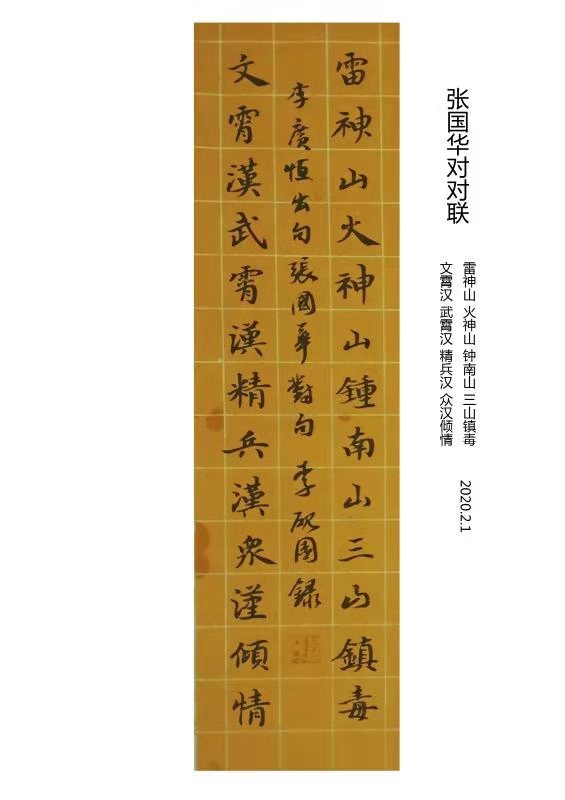 张国华对对联
雷神山 火神山 钟南山 三山镇毒
文霄汉 武霄汉 精兵汉 众汉倾情
2020.2.1
雷神山火神山鍾南山三山鎮毒
李廣恒出句張國華對句 李 錄
文霄漢武霄漢精兵漢衆漢傾情